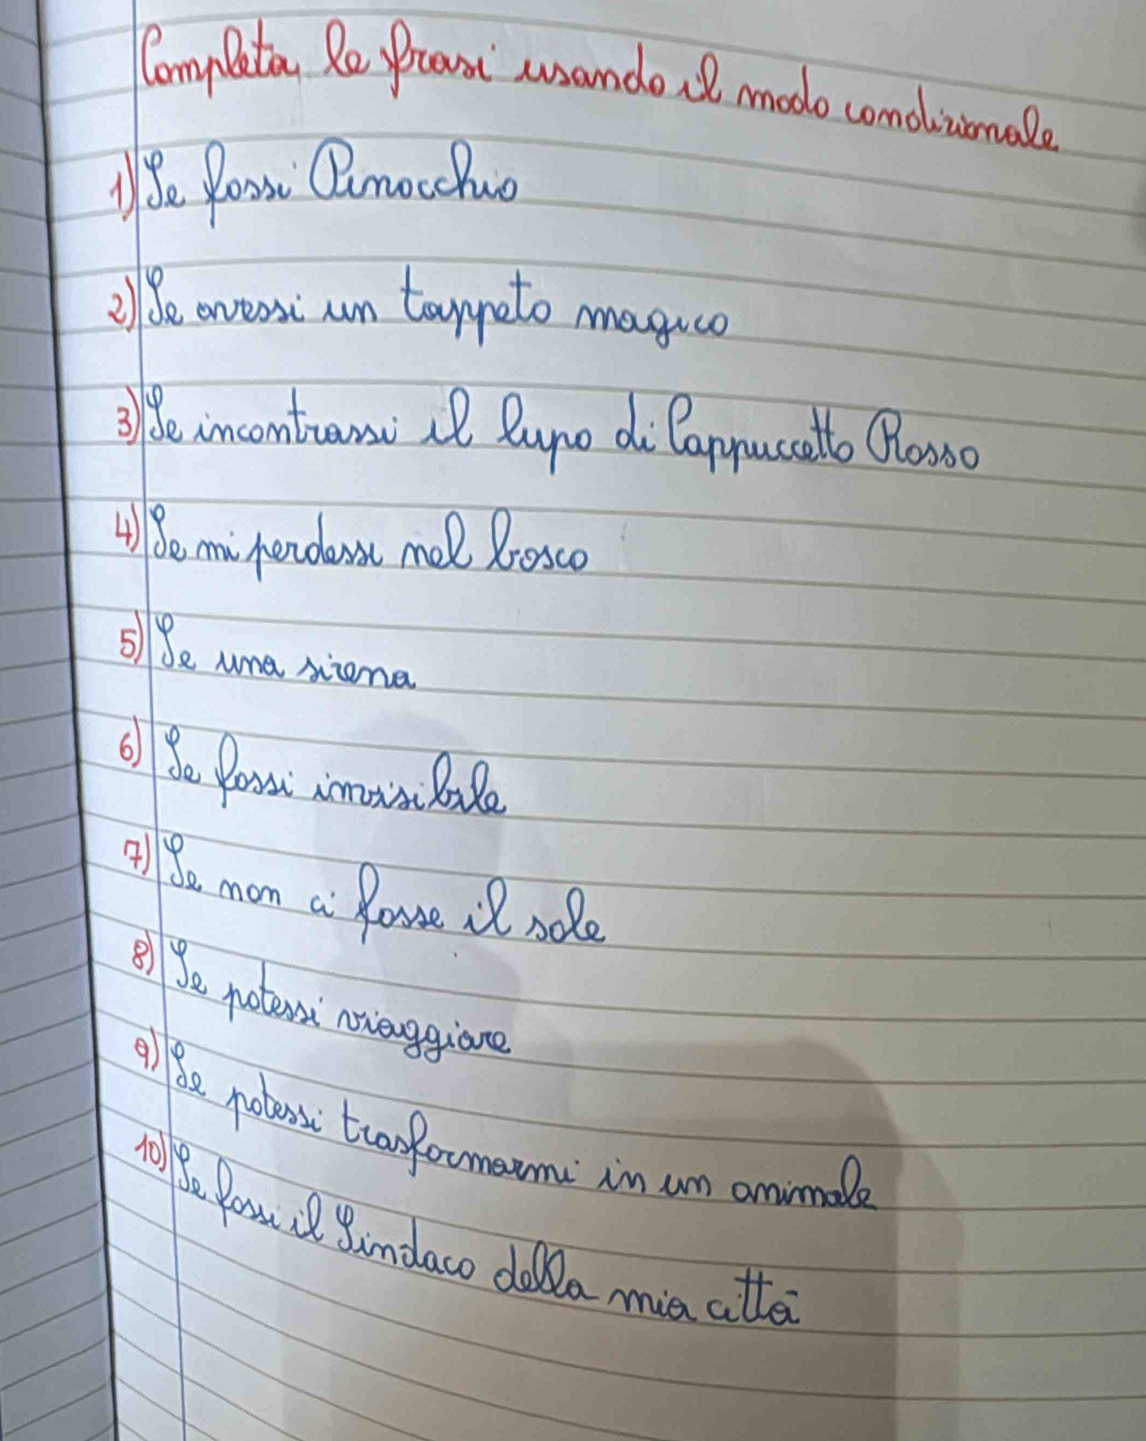 Completa le frasi usando il modo condizionale
1) Se fossi Pinocchio
2) Se avessi un tappeto magico
3) Se incontrassi il lupo di Cappuccetto Rosso
4) Se mi perdessi nel bosco
5) Se una sirena
6) Se fossi invisibile
7) Se non ci fosse il sole
8) Se potessi viaggiare
9) Se potessi trasformarmi in un animale
10) Se fossi il Sindaco della mia città